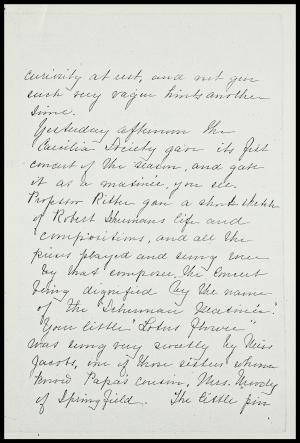 curiosity at rest, and not give
such very vague hints another
time.
Yesterday afternoon the
Cecilia Society gave its first
concert of the season, and gave
it as a matinée, you see.
Professor Ritter gave a short sketch
of Robert Schumans life and
compositions, and all the
pieces played and sung were
by that composer. The Concert
being dignified by the name
of the "Schuman Matinée."
"Your little "Lotus Flower"
was sung very sweetly by Miss
Jacobs, one of those sisters whom
Papa's cousin, Mrs.
of Springfield. The little